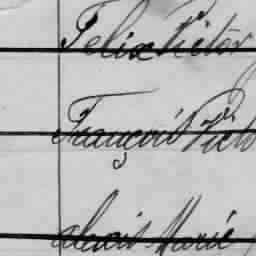 Felix Victor
François Vict
alexis Marie